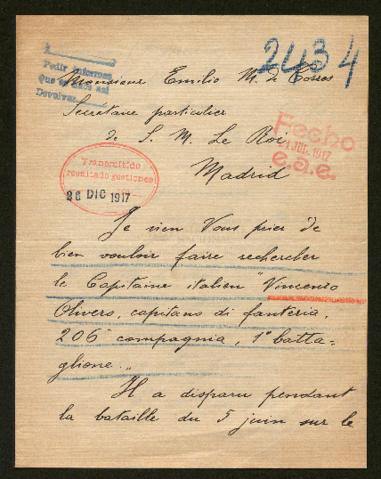 24394
Pedir informes
Que se
Devolver
Monsieur Emilio M. de Torres
Secretaire particulier
de S. M. Le Roi
Madrid
Fecho
21 JUL. 1917
e.a.e.
Transmitido
resultado gestiones
26 DIC 1917
Je vien Vous prier de
bien vouloir faire rechercher
le Capitaine italien "Vincenzo
Olivero, capitano di fanteria,
206 compagnia, 1° batta-
glione."
Il a disparu pendant
la bataille du 5 juin sur le